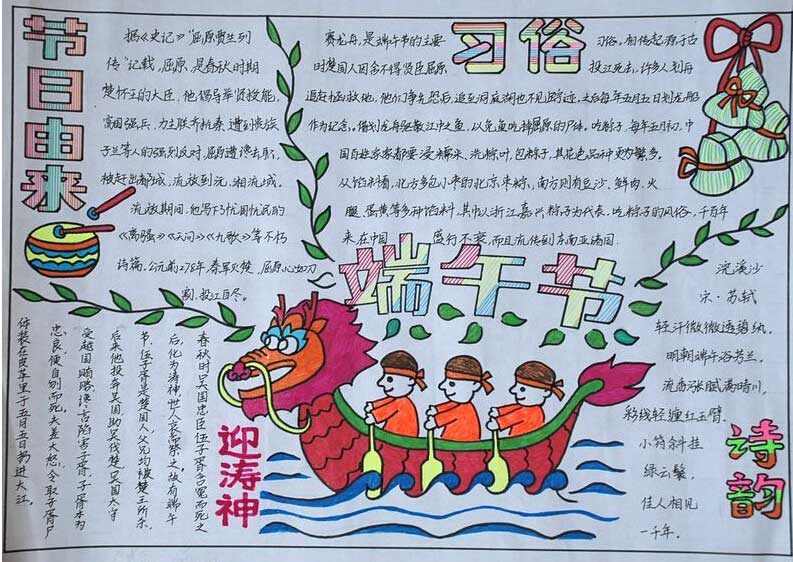 节日由来
据《史记》"屈原贾生列
传"记载,屈原,是春秋时期
楚怀王的大臣。他倡导举贤授能,
富国强兵,力主联齐抗秦,遭到贵族
子兰等人的强烈反对,屈原遭谗去职,
被赶出都城,流放到沅、湘流域。
流放期间,他写下了忧国忧民的
《离骚》《天问》《九歌》等不朽
诗篇。公元前278年,秦军灭楚,屈原心如刀
割,投江自尽。
习俗
赛龙舟,是端午节的主要
习俗。相传起源于古
时楚国人因舍不得贤臣屈原
投江死去,许多人划船
追赶拯救他。他们争先恐后,追至洞庭湖也不见踪迹,之后每年五月五日划龙船
作为纪念。借划龙舟驱散江中之鱼,以免鱼吃掉屈原的尸体。吃粽子,每年五月初,中
国百姓家家都要浸糯米、洗粽叶、包粽子,其花色品种更为繁多。
从馅料看,北方多包小枣的北京枣粽,南方则有豆沙、鲜肉、火
腿、蛋黄等多种馅料,其中以浙江嘉兴粽子为代表。吃粽子的风俗,千百年
来在中国
盛行不衰,而且流传到东南亚诸国.
端午节
迎涛神
春秋时吴国忠臣伍子胥含冤而死之
后,化为涛神,世人哀而祭之,故有端午
节。伍子胥是楚国人,父兄均被楚王所杀,
后来他投奔吴国助吴伐楚。吴国大宰
受越国贿赂,谗言陷害子胥,子胥本为
忠良,便自刎而死,夫差大怒,令取子胥尸
体装在皮革里于五月五日扔进大江。
诗韵
浣溪沙
宋·苏轼
轻汗微微透碧纨,
明朝端午浴芳兰。
流香涨腻满晴川。
彩线轻缠红玉臂,
小符斜挂
绿云鬟。
佳人相见
一千年。